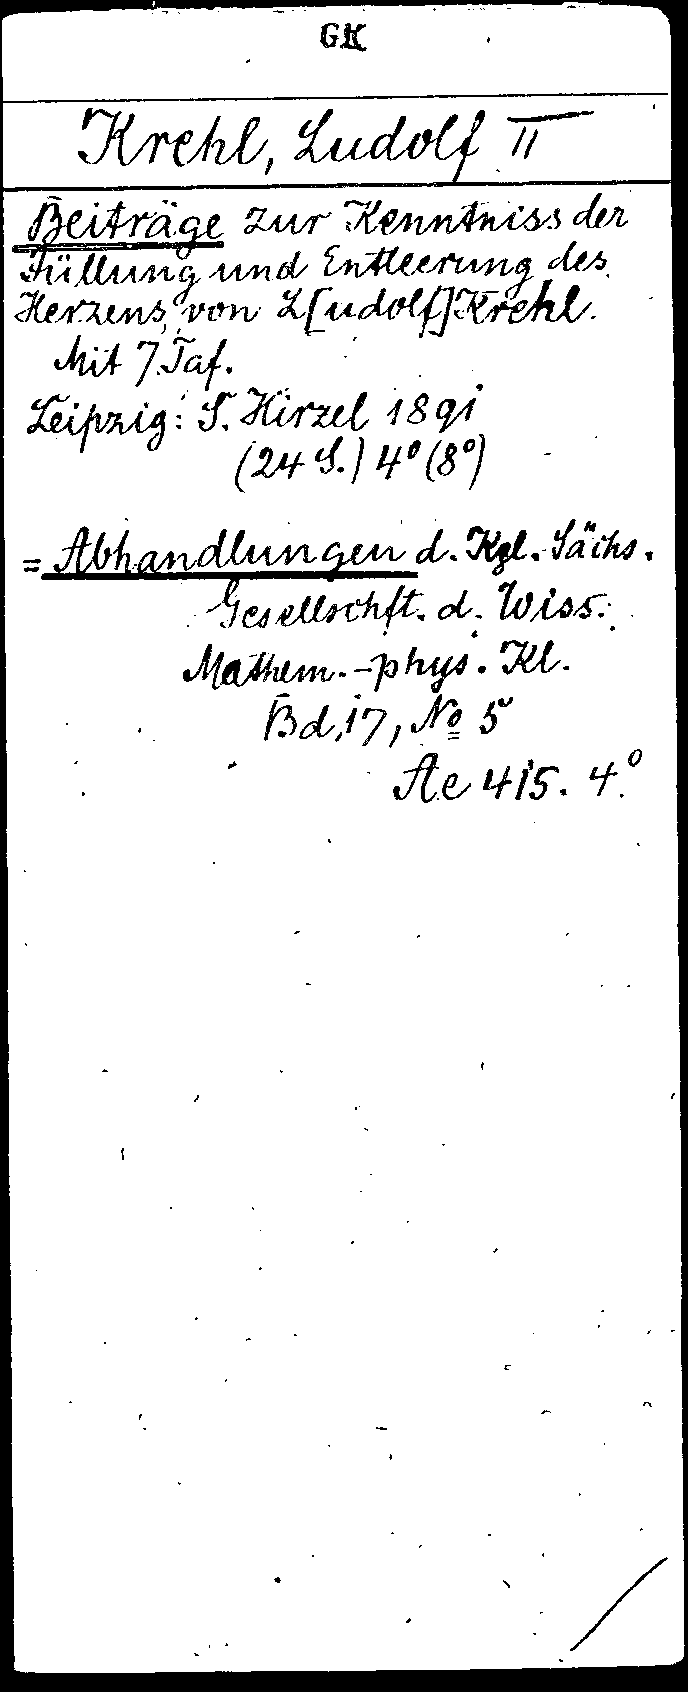 GK
Krehl, Ludolf II
Beiträge zur Kenntniss der
Füllung und Entleerung des
Herzens, von L[udolf] Krehl.
Mit 7 Taf.
Leipzig: S. Hirzel 1891
(24 S.) 4° (8°)
= Abhandlungen d. Kgl. Sächs.
Gesellschft. d. Wiss.
Mathem.-phys. Kl.
Bd. 17, No 5
Ae 415. 4°